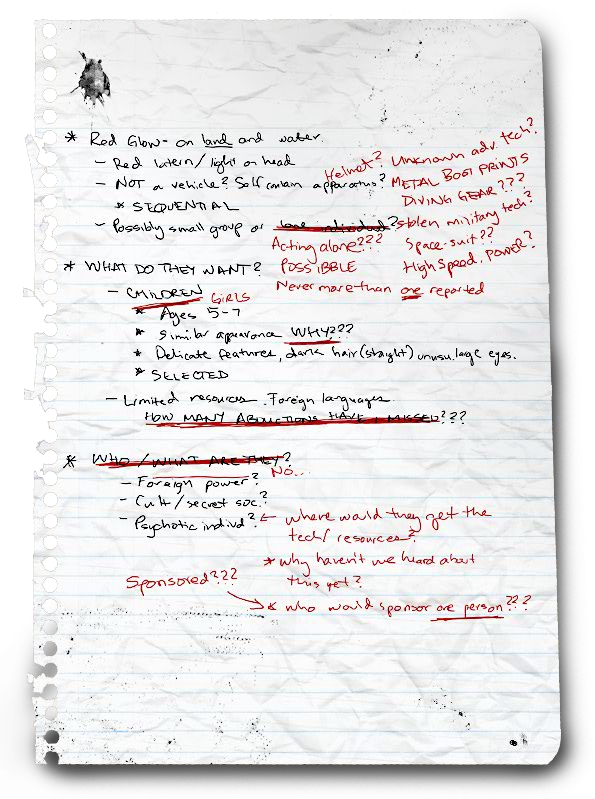 * Red Glow - on land and water.
- Red latern/light on head
- NOT a vehicle? Self contain apparatus?
* SEQUENTIAL
- Possibly small group or lone individual?
Helmet?
Unknown adv. tech?
METAL BOOT PRINTS
DIVING GEAR???
stolen military tech?
Space-suit??
High Speed. POWER?
Acting alone???
POSSIBBLE
Never more than one reported
* WHAT DO THEY WANT?
- CHILDREN GIRLS
* Ages 5-7
* Similar apearance WHY???
* Delicate features, dark hair (staight) unusu. large eyes.
* SELECTED
- Limited resources. Foreign languages.
HOW MANY ABDUCTIONS HAVE I MISSED???
* WHO/WHAT ARE THEY?
NO...
- Foreign power?
- Cult/secret soc.?
- Psychotic individ? ← where would they get the
tech/resources?
* why haven't we heard about
this yet?
Sponsored???
* who would sponsor one person???